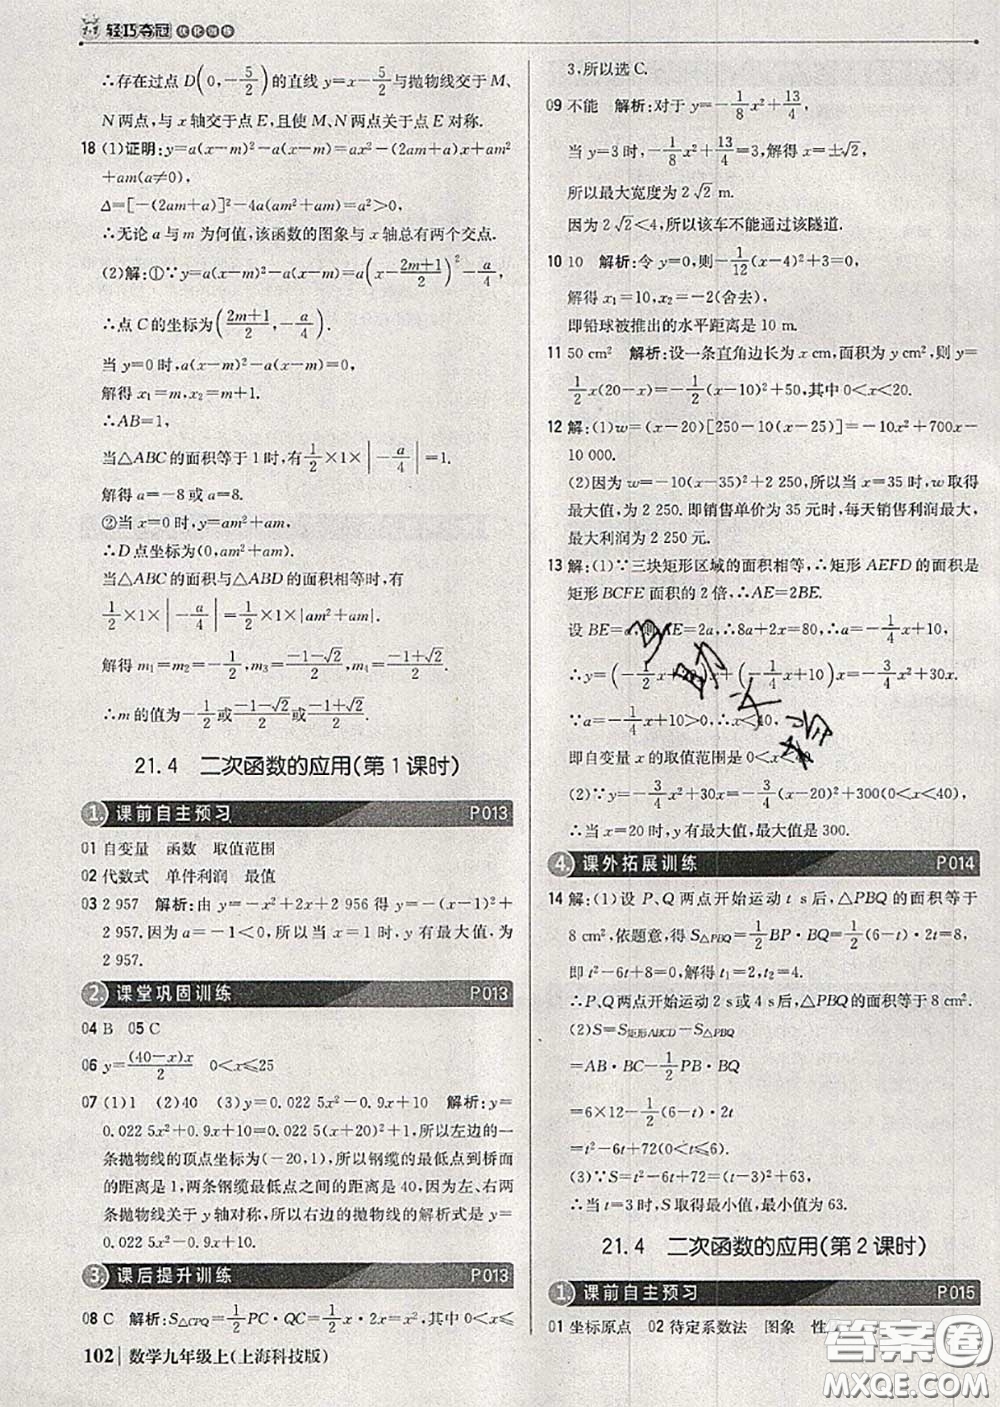 1+1 轻巧夺冠 优化训练
∴存在过点 D(0,-5/2)的直线 y=x-5/2与抛物线交于 M、
N 两点,与 x 轴交于点 E,且使 M、N 两点关于点 E 对称.
18 (1)证明:y=a(x-m)²-a(x-m)=ax²-(2am+a)x+am²
+am(a≠0),
Δ=[-(2am+a)]²-4a(am²+am)=a²>0,
∴无论 a 与 m 为何值,该函数的图象与 x 轴总有两个交点.
(2)解:①∵y=a(x-m)²-a(x-m)=a(x-(2m+1)/2)²-a/4,
∴点 C 的坐标为((2m+1)/2,-a/4).
当 y=0 时,a(x-m)²-a(x-m)=0,
解得 x₁=m,x₂=m+1.
∴AB=1,
当△ABC 的面积等于 1 时,有1/2×1×|-a/4|=1.
解得 a=-8 或 a=8.
②当 x=0 时,y=am²+am,
∴D 点坐标为(0,am²+am).
当△ABC 的面积与△ABD 的面积相等时,有
1/2×1×|-a/4|=1/2×1×|am²+am|.
解得 m₁=m₂=-1/2,m₃=(-1-√2)/2,m₄=(-1+√2)/2.
∴m 的值为-1/2或(-1-√2)/2或(-1+√2)/2.
21.4 二次函数的应用(第 1 课时)
1. 课前自主预习 P013
01 自变量 函数 取值范围
02 代数式 单件利润 最值
03 2 957 解析:由 y=-x²+2x+2 956 得 y=-(x-1)²+
2 957. 因为 a=-1<0,所以当 x=1 时,y 有最大值,为
2 957.
2. 课堂巩固训练 P013
04 B 05 C
06 y=(40-x)x/2 0<x≤25
07 (1)1 (2)40 (3)y=0.022 5x²-0.9x+10 解析:y=
0.022 5x²+0.9x+10=0.022 5(x+20)²+1,所以左边的一
条抛物线的顶点坐标为(-20,1),所以钢缆的最低点到桥面
的距离是 1,两条钢缆最低点之间的距离是 40,因为左、右两
条抛物线关于 y 轴对称,所以右边的抛物线的解析式是 y=
0.022 5x²-0.9x+10.
3. 课后提升训练 P013
08 C 解析:S△CPQ=1/2PC·QC=1/2x·2x=x²,0<x≤
102 数学九年级上(上海科技版)
3,所以选 C.
09 不能 解析:对于 y=-1/8x²+13/4,
当 y=3 时,-1/8x²+13/4=3,解得 x=±√2,
所以最大宽度为 2√2 m.
因为 2√2<4,所以该车不能通过该隧道.
10 10 解析:令 y=0,则-1/12(x-4)²+3=0,
解得 x₁=10,x₂=-2(舍去),
即铅球被推出的水平距离是 10 m.
11 50 cm² 解析:设一条直角边长为 x cm,面积为 y cm²,则 y=
1/2x(20-x)=-1/2(x-10)²+50,其中 0<x<20.
12 解:(1)w=(x-20)[250-10(x-25)]=-10x²+700x-
10 000.
(2)因为 w=-10(x-35)²+2 250,所以当 x=35 时,w 取得
最大值,为 2 250. 即销售单价为 35 元时,每天销售利润最大,
最大利润为 2 250 元.
13 解:(1)∵三块矩形区域的面积相等,∴矩形 AEFD 的面积是
矩形 BCFE 面积的 2 倍,∴AE=2BE.
设 BE=a,则AE=2a,∴8a+2x=80,∴a=-1/4x+10,
∴y=(-1/2x+20)x+(-1/4x+10)x=-3/4x²+30x.
∵a=-1/4x+10>0,∴x<40,
即自变量 x 的取值范围是 0<x<40.
(2)∵y=-3/4x²+30x=-3/4(x-20)²+300,
∴当 x=20 时,y 有最大值,最大值是 300.
4. 课外拓展训练 P014
14 解:(1)设 P、Q 两点开始运动 t s 后,△PBQ 的面积等于
8 cm²,依题意,得 S△PBQ=1/2BP·BQ=1/2(6-t)·2t=8.
即 t²-6t+8=0,解得 t₁=2,t₂=4.
∴P、Q 两点开始运动 2 s 或 4 s 后,△PBQ 的面积等于 8 cm².
(2)S=S矩形ABCD-S△PBQ
=AB·BC-1/2PB·BQ
=6×12-1/2(6-t)·2t
=t²-6t+72(0<t≤6).
(3)∵S=t²-6t+72=(t-3)²+63,
∴当 t=3 时,S 取得最小值,最小值为 63.
21.4 二次函数的应用(第 2 课时)
1. 课前自主预习 P015
01 坐标原点 02 待定系数法 图象 性
答案圈
MXQE.COM